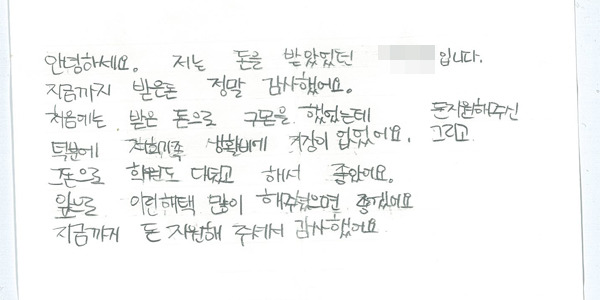 안녕하세요. 저는 돈을 받았었던 입니다.
지금까지 받은돈 정말 감사했어요.
처음에는 받은 돈으로 구몬을 했었는데 돈지원해주신
덕분에 저희가족 생활비에 걱정이 없었어요. 그리고
그돈으로 학원도 다녔고 해서 좋았어요.
앞으로 이런해택 많이 해주셨으면 좋겠어요
지금까지 돈 지원해 주셔서 감사했어요